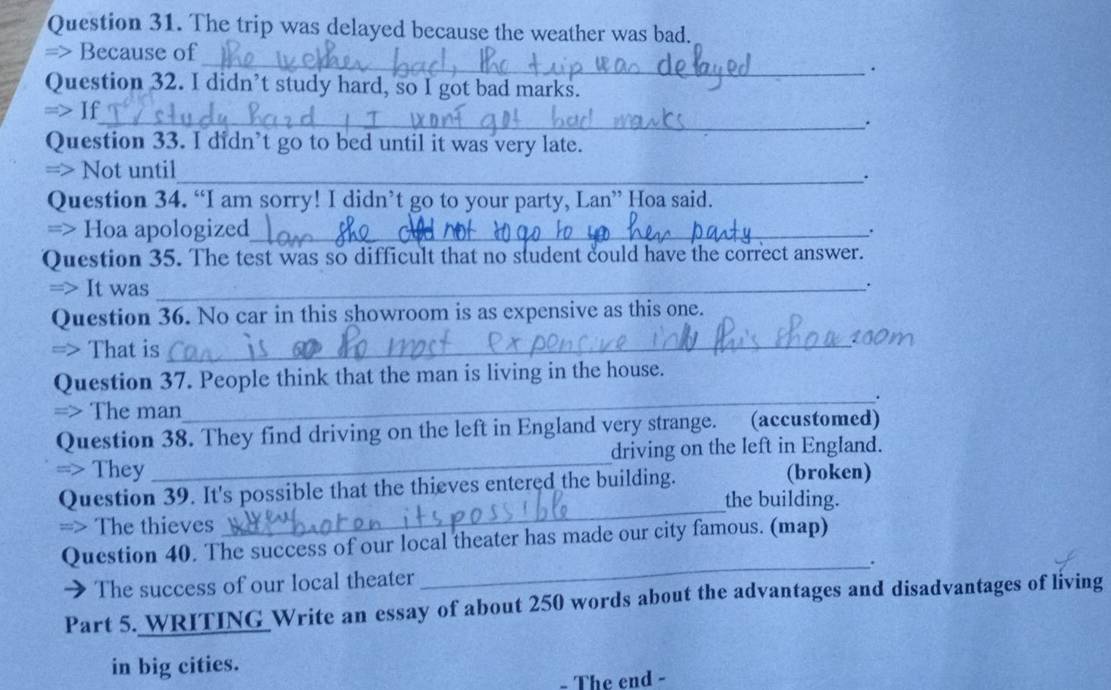 Question 31. The trip was delayed because the weather was bad.
=> Because of the wether bad, the trip was delayed.
Question 32. I didn't study hard, so I got bad marks.
=> If I study hard, I wont got bad marks.
Question 33. I didn't go to bed until it was very late.
=> Not until_______.
Question 34. “I am sorry! I didn't go to your party, Lan” Hoa said.
=> Hoa apologized Lan she did not to go to her party.
Question 35. The test was so difficult that no student could have the correct answer.
=> It was _______.
Question 36. No car in this showroom is as expensive as this one.
=> That is car is most expensive in this shoa room
Question 37. People think that the man is living in the house.
=> The man_______.
Question 38. They find driving on the left in England very strange. (accustomed)
=> They _______driving on the left in England.
Question 39. It's possible that the thieves entered the building. (broken)
=> The thieves broken its possible the building.
Question 40. The success of our local theater has made our city famous. (map)
➔ The success of our local theater _______.
Part 5. WRITING Write an essay of about 250 words about the advantages and disadvantages of living
in big cities.
- The end -